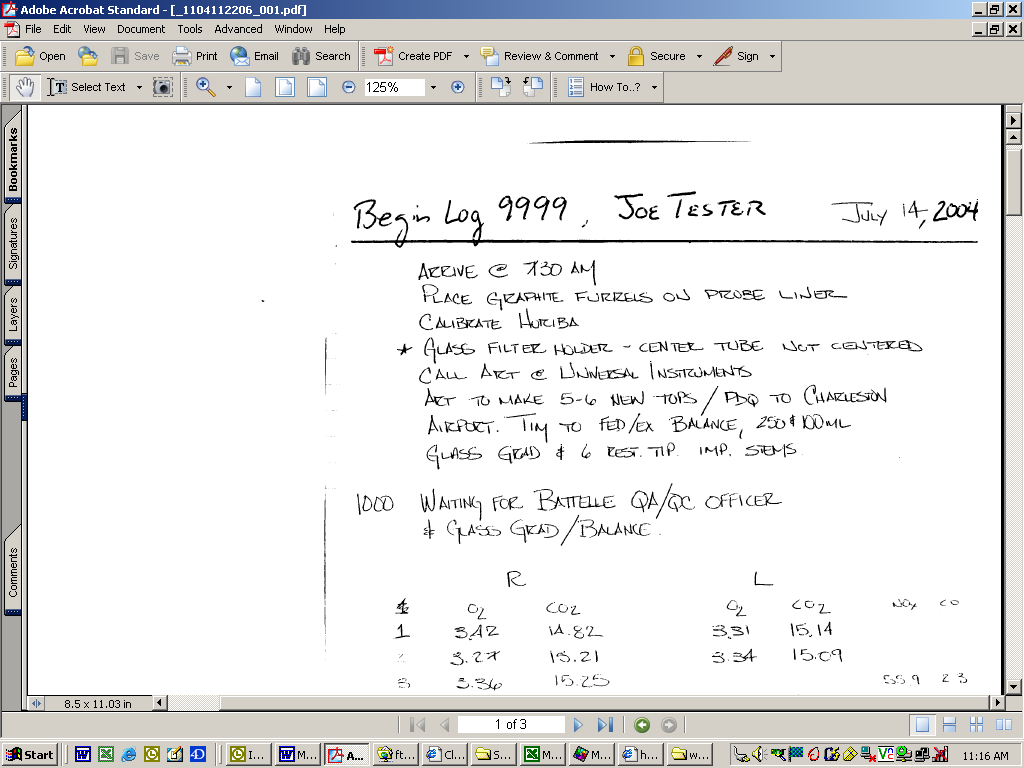 Adobe Acrobat Standard - [_1104112206_001.pdf]
File Edit View Document Tools Advanced Window Help
Open Save Print Email Search Create PDF Review & Comment Secure Sign
Select Text 125% How To..?
Bookmarks
Signatures
Layers
Pages
Comments
Begin Log 9999, JOE TESTER JULY 14, 2004
ARRIVE @ 730 AM
PLACE GRAPHITE FURRELS ON PROBE LINER
CALIBRATE HORIBA
* GLASS FILTER HOLDER - CENTER TUBE NOT CENTERED
CALL ART @ UNIVERSAL INSTRUMENTS
ART TO MAKE 5-6 NEW TOPS / PDQ TO CHARLESTON
AIRPORT. TIM TO FED/EX BALANCE, 250 & 100 ML
GLASS GRAD & 6 REST. TIP. IMP. STEMS.
1000 WAITING FOR BATTELLE QA/QC OFFICER
& GLASS GRAD/BALANCE.
R L
O2 CO2 O2 CO2 NOx CO
1 3.42 14.82 3.31 15.14
2 3.27 15.21 3.34 15.09
3 3.36 15.25 55.9 23
8.5 x 11.03 in
1 of 3
Start I... M... A... ft... Cl... S... M... M... h... w... 11:16 AM